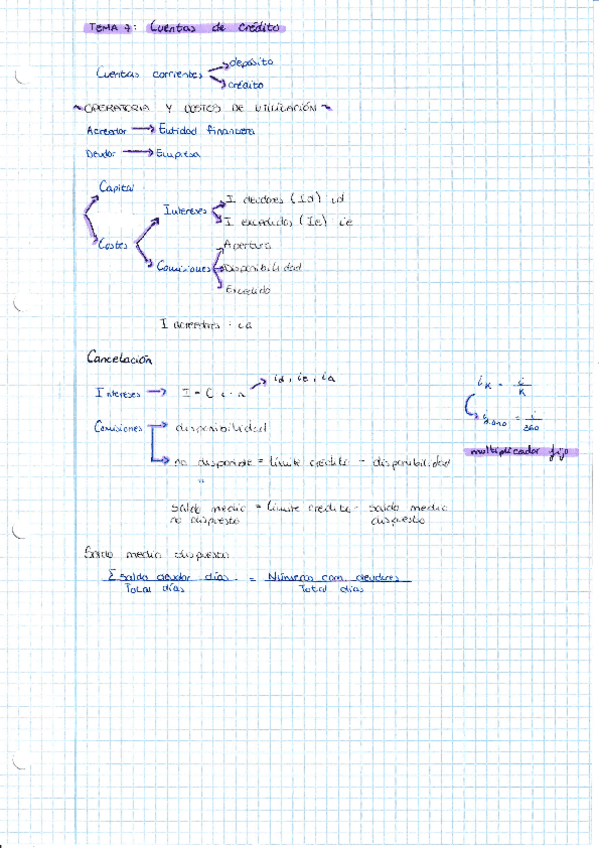 TEMA 7: Cuentas de Crédito
Cuentas corrientes → depósito
→ crédito
~ OPERATORIA Y COSTES DE UTILIZACIÓN ~
Acreedor → Entidad financiera
Deudor → Empresa
Capital
Intereses → I deudores (Id) id
→ I excedidos (Ie) ie
Costes
Comisiones → Apertura
→ Disponibilidad
→ Excedido
I acreedores · ia
Cancelación
Intereses → I = C · i · n → id, ie, ia
iK = i/K
= i/360
multiplicador fijo
Comisiones → disponibilidad
→ no dispuesto = límite crédito - disponibilidad
"
saldo medio no dispuesto = límite crédito - saldo medio dispuesto
Saldo medio dispuesto
Σ saldo deudor días / Total días = Números com. deudores / Total días